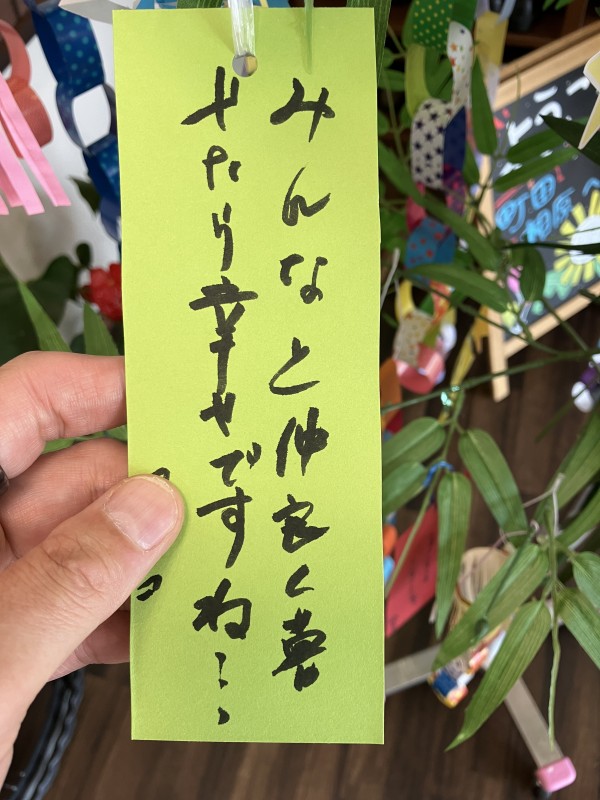 みんなと仲良く暮
せたら幸せですね…
町田
相原へ